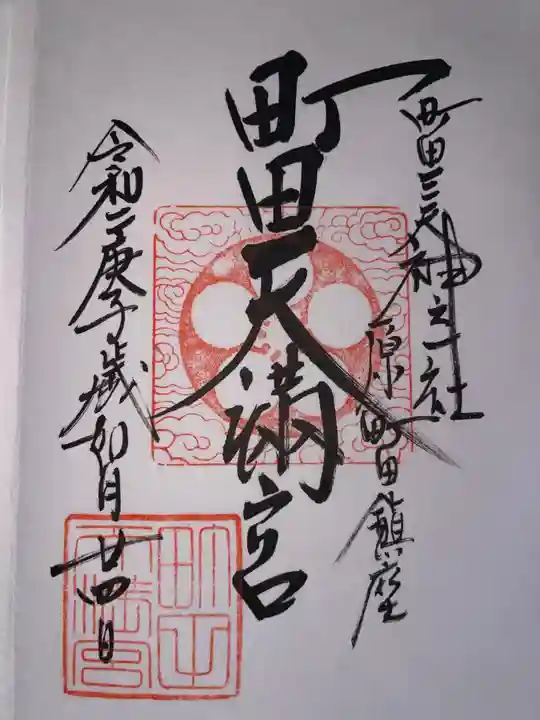 町田三天神之一社
原町田鎮座
町田天満宮
令和二庚子歳如月廿四日
町田天満宮